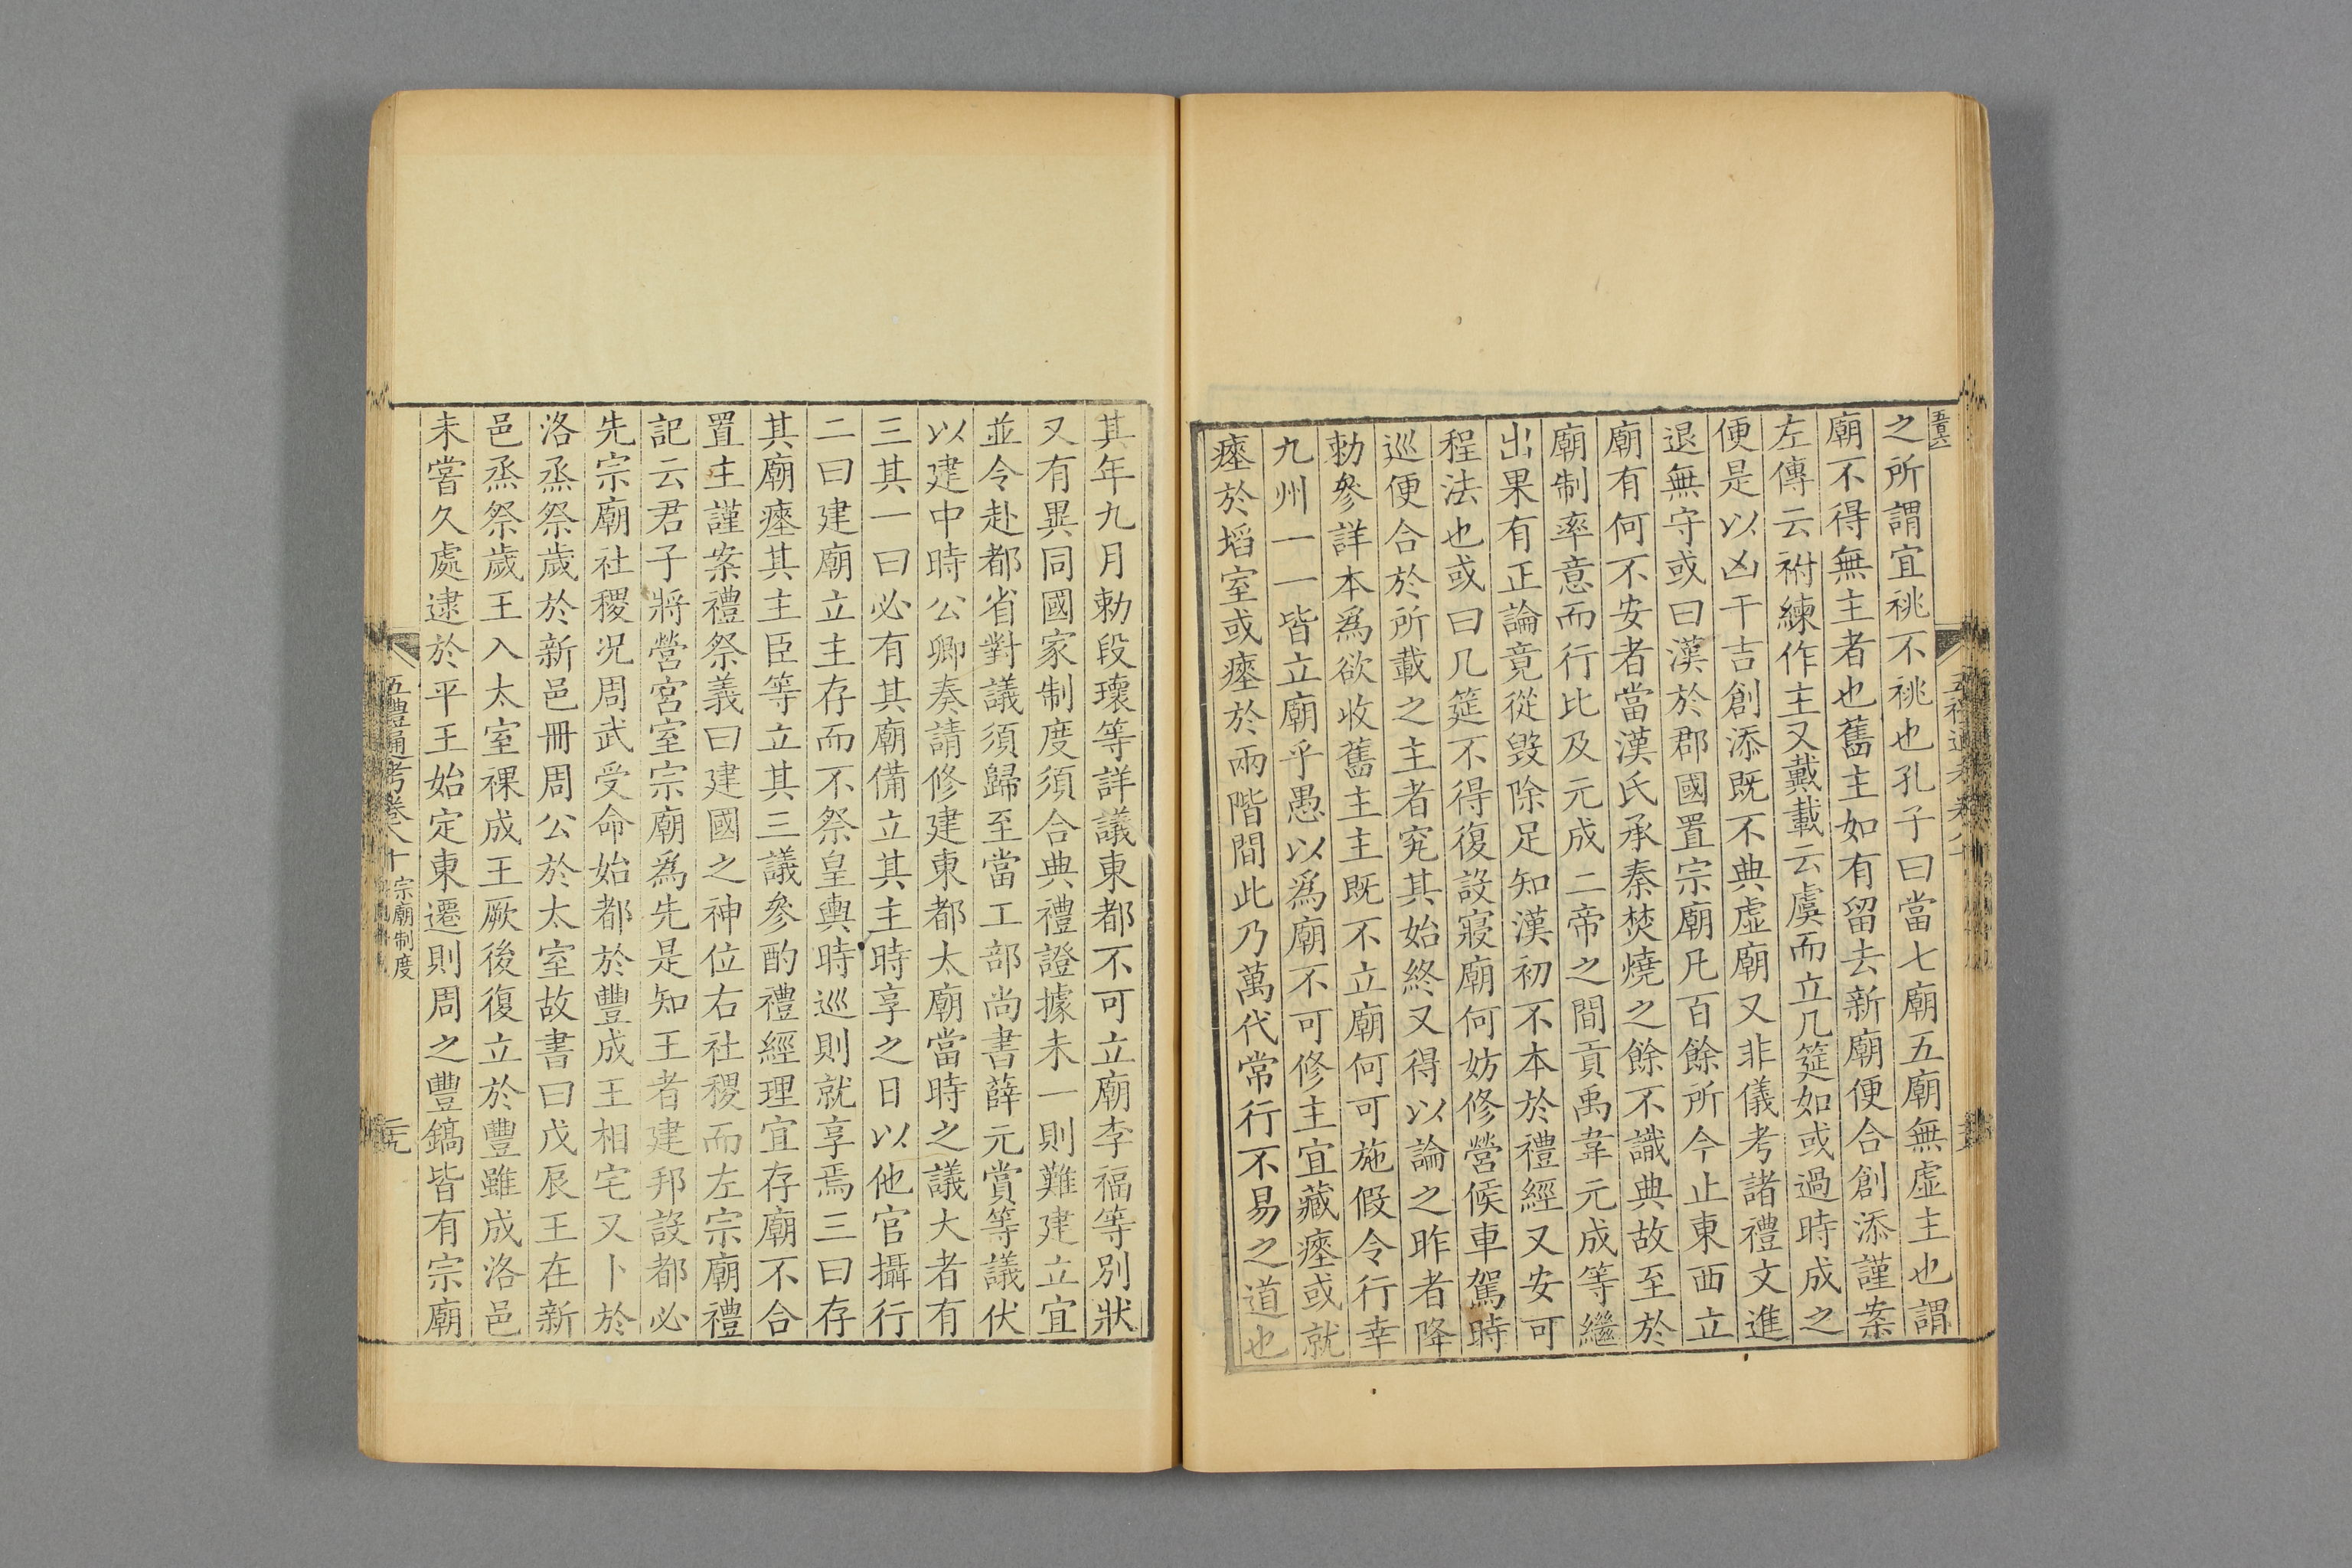 五百六
之所謂宜祧不祧也孔子曰當七廟五廟無虛主也謂
廟不得無主者也舊主如有留去新廟便合創添謹案
左傳云祔練作主又戴載云虞而立几筵如或過時成之
便是以凶干吉創添既不典虛廟又非儀考諸禮文進
退無守或曰漢於郡國置宗廟凡百餘所今止東西立
廟有何不安者當漢氏承秦焚燒之餘不識典故至於
廟制率意而行比及元成二帝之間貢禹韋元成等繼
出果有正論竟從毀除足知漢初不本於禮經又安可
程法也或曰几筵不得復設寢廟何妨修營候車駕時
巡便合於所載之主者究其始終又得以論之昨者降
勅參詳本為欲收舊主主既不立廟何可施假令行幸
九州一一皆立廟乎愚以為廟不可修主宜藏瘞或就
瘞於埳室或瘞於兩階間此乃萬代常行不易之道也
其年九月勅段瓌等詳議東都不可立廟李福等別狀
又有異同國家制度須合典禮證據未一則難建立宜
並令赴都省對議須歸至當工部尚書薛元賞等議伏
以建中時公卿奏請修建東都太廟當時之議大者有
三其一曰必有其廟備立其主時享之日以他官攝行
二曰建廟立主存而不祭皇輿時巡則就享焉三曰存
其廟瘞其主臣等立其三議參酌禮經理宜存廟不合
置主謹案禮祭義曰建國之神位右社稷而左宗廟禮
記云君子將營宮室宗廟為先是知王者建邦設都必
先宗廟社稷況周武受命始都於豐成王相宅又卜於
洛烝祭歲於新邑冊周公於太室故書曰戊辰王在新
邑烝祭歲王入太室祼成王厥後復立於豐雖成洛邑
未嘗久處逮於平王始定東遷則周之豐鎬皆有宗廟
五禮通考卷八十 宗廟制度